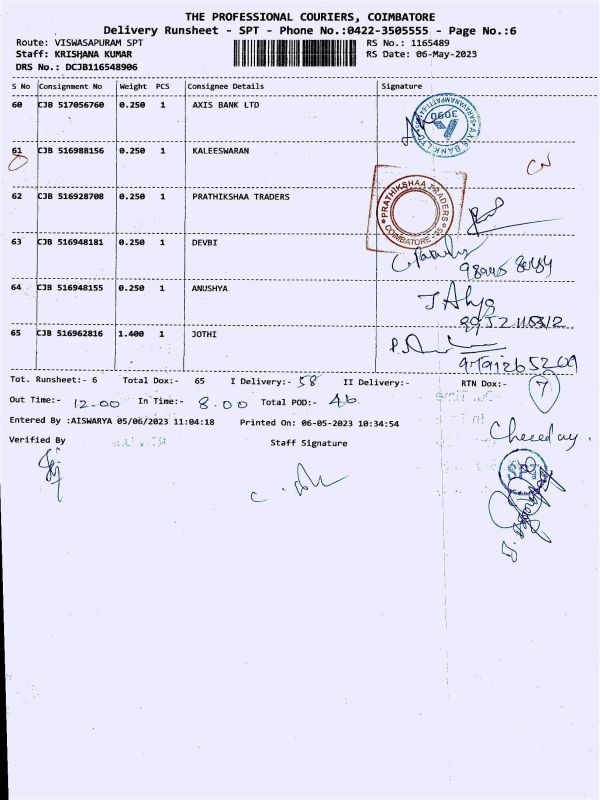 THE PROFESSIONAL COURIERS, COIMBATORE
Delivery Runsheet - SPT - Phone No.:0422-3505555 - Page No.:6
Route: VISWASAPURAM SPT RS No.: 1165489
Staff: KRISHANA KUMAR RS Date: 06-May-2023
DRS No.: DCJB116548906
S No Consignment No Weight PCS Consignee Details Signature
60 CJB 517056760 0.250 1 AXIS BANK LTD
AXIS BANK LTD
61 CJB 516988156 0.250 1 KALEESWARAN CN
62 CJB 516928708 0.250 1 PRATHIKSHAA TRADERS
PRATHIKSHAA TRADERS
COIMBATORE - 35
63 CJB 516948181 0.250 1 DEVBI
64 CJB 516948155 0.250 1 ANUSHYA
65 CJB 516962816 1.400 1 JOTHI
Tot. Runsheet:- 6 Total Dox:- 65 I Delivery:- 58 II Delivery:- RTN Dox:- 7
Out Time:- 12.00 In Time:- 8.00 Total POD:- 46
Entered By :AISWARYA 05/06/2023 11:04:18 Printed On: 06-05-2023 10:34:54
Verified By Staff Signature
SPT